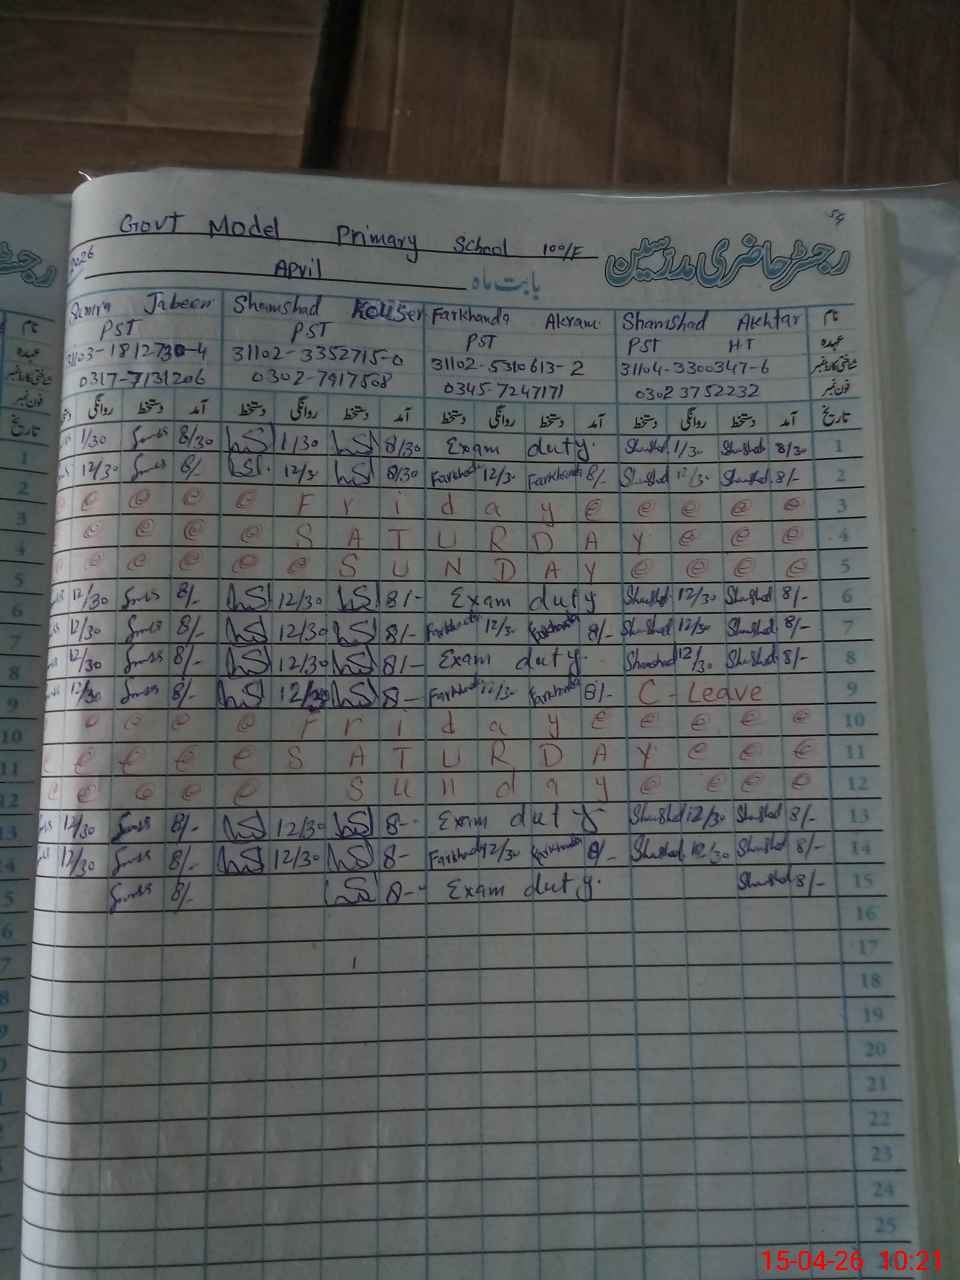 54
Govt Model Primary School 100/F رجسٹر حاضری مدرسین
2026 April بابت ماہ
Jabeen Shamshad Kouser Farkhanda Akram Shamshad Akhtar نام
PST PST PST PST HT عہدہ
31103-1812730-4 31102-3352715-0 31102-5310613-2 31104-3300347-6 شناختی کارڈ نمبر
0317-7131206 0302-7917508 0345-7247171 0302 3752232 فون نمبر
روانگی دستخط آمد دستخط روانگی دستخط آمد دستخط روانگی دستخط آمد دستخط روانگی دستخط آمد تاریخ
1/30 8/30 1/30 8/30 Exam duty. Shamshad 1/30 Shamshad 8/30 1
12/30 8/- 12/3 8/30 Farkhanda 12/3 Farkhanda 8/- Shamshad 12/3 Shamshad 8/- 2
Friday 3
SATURDAY 4
SUNDAY 5
12/30 8/- 12/30 8/- Exam duty Shamshad 12/30 Shamshad 8/- 6
12/30 8/- 12/30 8/- Farkhanda 12/3 Farkhanda 8/- Shamshad 12/30 Shamshad 8/- 7
12/30 8/- 12/30 8/- Exam duty. Shamshad 12/30 Shamshad 8/- 8
12/30 8/- 12/30 8- Farkhanda 12/3 Farkhanda 8/- C-Leave 9
Friday 10
SATURDAY 11
Sunday 12
12/30 8/- 12/30 8- Exam duty Shamshad 12/30 Shamshad 8/- 13
12/30 8/- 12/30 8- Farkhanda 12/30 Farkhanda 8/- Shamshad 12/30 Shamshad 8/- 14
8/- 8- Exam duty. Shamshad 8/- 15
16
17
18
19
20
21
22
23
24
25
15-04-26 10:21